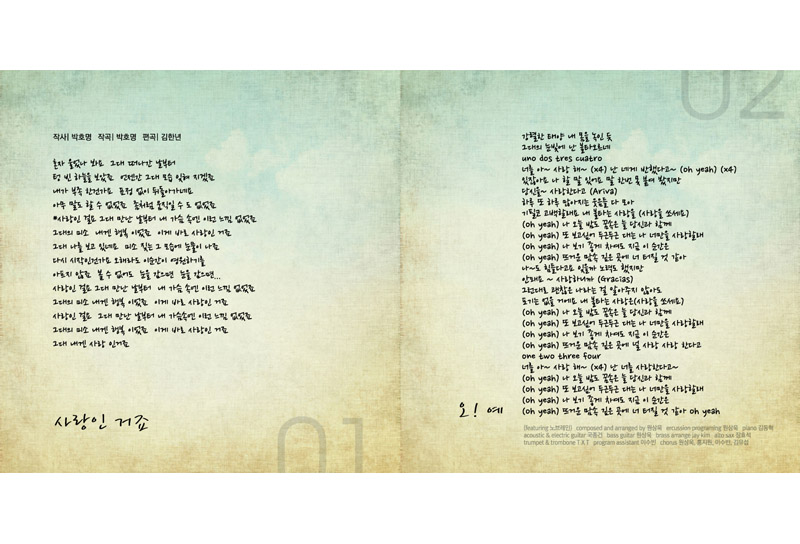 작사| 박호명 작곡| 박호명 편곡| 김한년
혼자 울었나 봐요 그대 떠나간 날부터
텅 빈 하늘을 보았죠 언젠간 그대 모습 잊혀 지겠죠
내가 부족 한건가요 표정 없이 뒤돌아가네요
아무 말도 할 수 없었죠 솜처럼 움직일 수 도 없었죠
*사랑인 걸요 그대 만난 날부터 내 가슴 속엔 이런 느낌 없었죠
그대의 미소 내겐 행복 이었죠 이게 바로 사랑인 거죠
그대 나를 보고 있네요 미소 짓는 그 모습에 눈물이 나죠
다시 시작인건가요 오래라도 이순간이 영원하기를
아프지 않죠 볼 수 없어도 눈을 감으면 눈을 감으면...
사랑인 걸요 그대 만난 날부터 내 가슴 속엔 이런 느낌 없었죠
그대의 미소 내겐 행복 이었죠 이게 바로 사랑인 거죠
사랑인 걸요 그대 만난 날부터 내 가슴속엔 이런 느낌 없었죠
그대의 미소 내겐 행복 이었죠 이게 바로 사랑인 거죠
그대 내겐 사랑 인거죠
사랑인 거죠
01
02
강렬한 태양 내 몸을 녹인 듯
그대의 눈빛에 난 불타오르네
uno dos tres cuatro
너를 아~ 사랑 해~ (x4) 난 네게 반했다고~ (oh yeah) (x4)
있잖아요 나 할 말 있어요 말 한번 못 붙여 봤지만
당신을~ 사랑한다고 (Ariva)
하루 또 하루 많아지는 웃음을 다 모아
기필코 고백할래요 내 불타는 사랑을 (사랑을 쏘세요)
(oh yeah) 나 오늘 밤도 꿈속은 늘 당신과 함께
(oh yeah) 또 보고싶어 두근두근 대는 나 너만을 사랑할래
(oh yeah) 나 보기 좋게 차여도 지금 이 순간은
(oh yeah) 뜨거운 맘속 깊은 곳에 너 터질 것 같아
나~도 힘들다고요 잊을까 노력도 했지만
안돼요 ~ 사랑하니까 (Gracias)
그런대로 괜찮은 나라는 걸 알아주지 않아도
포기는 없을 거에요 내 불타는 사랑은(사랑을 쏘세요)
(oh yeah) 나 오늘 밤도 꿈속은 늘 당신과 함께
(oh yeah) 또 보고싶어 두근두근 대는 나 너만을 사랑할래
(oh yeah) 나 보기 좋게 차여도 지금 이 순간은
(oh yeah) 뜨거운 맘속 깊은 곳에 널 사랑 사랑 한다고
one two three four
너를 아~ 사랑 해~ (x4) 난 너를 사랑한다고~
(oh yeah) 나 오늘 밤도 꿈속은 늘 당신과 함께
(oh yeah) 또 보고싶어 두근두근 대는 나 너만을 사랑할래
(oh yeah) 나 보기 좋게 차여도 지금 이 순간은
(oh yeah) 뜨거운 맘속 깊은 곳에 너 터질 것 같아 oh yeah
오! 예
(featuring 노브레인) composed and arranged by 원상욱 ercussion programing 원상욱 piano 김동혁
acoustic & electric guitar 국종건 bass guitar 원상욱 brass arrange jay kim alto sax 장효석
trumpet & trombone T.X.T program assistant 이수빈 chorus 원상욱, 홍지원, 이수빈, 김우섭